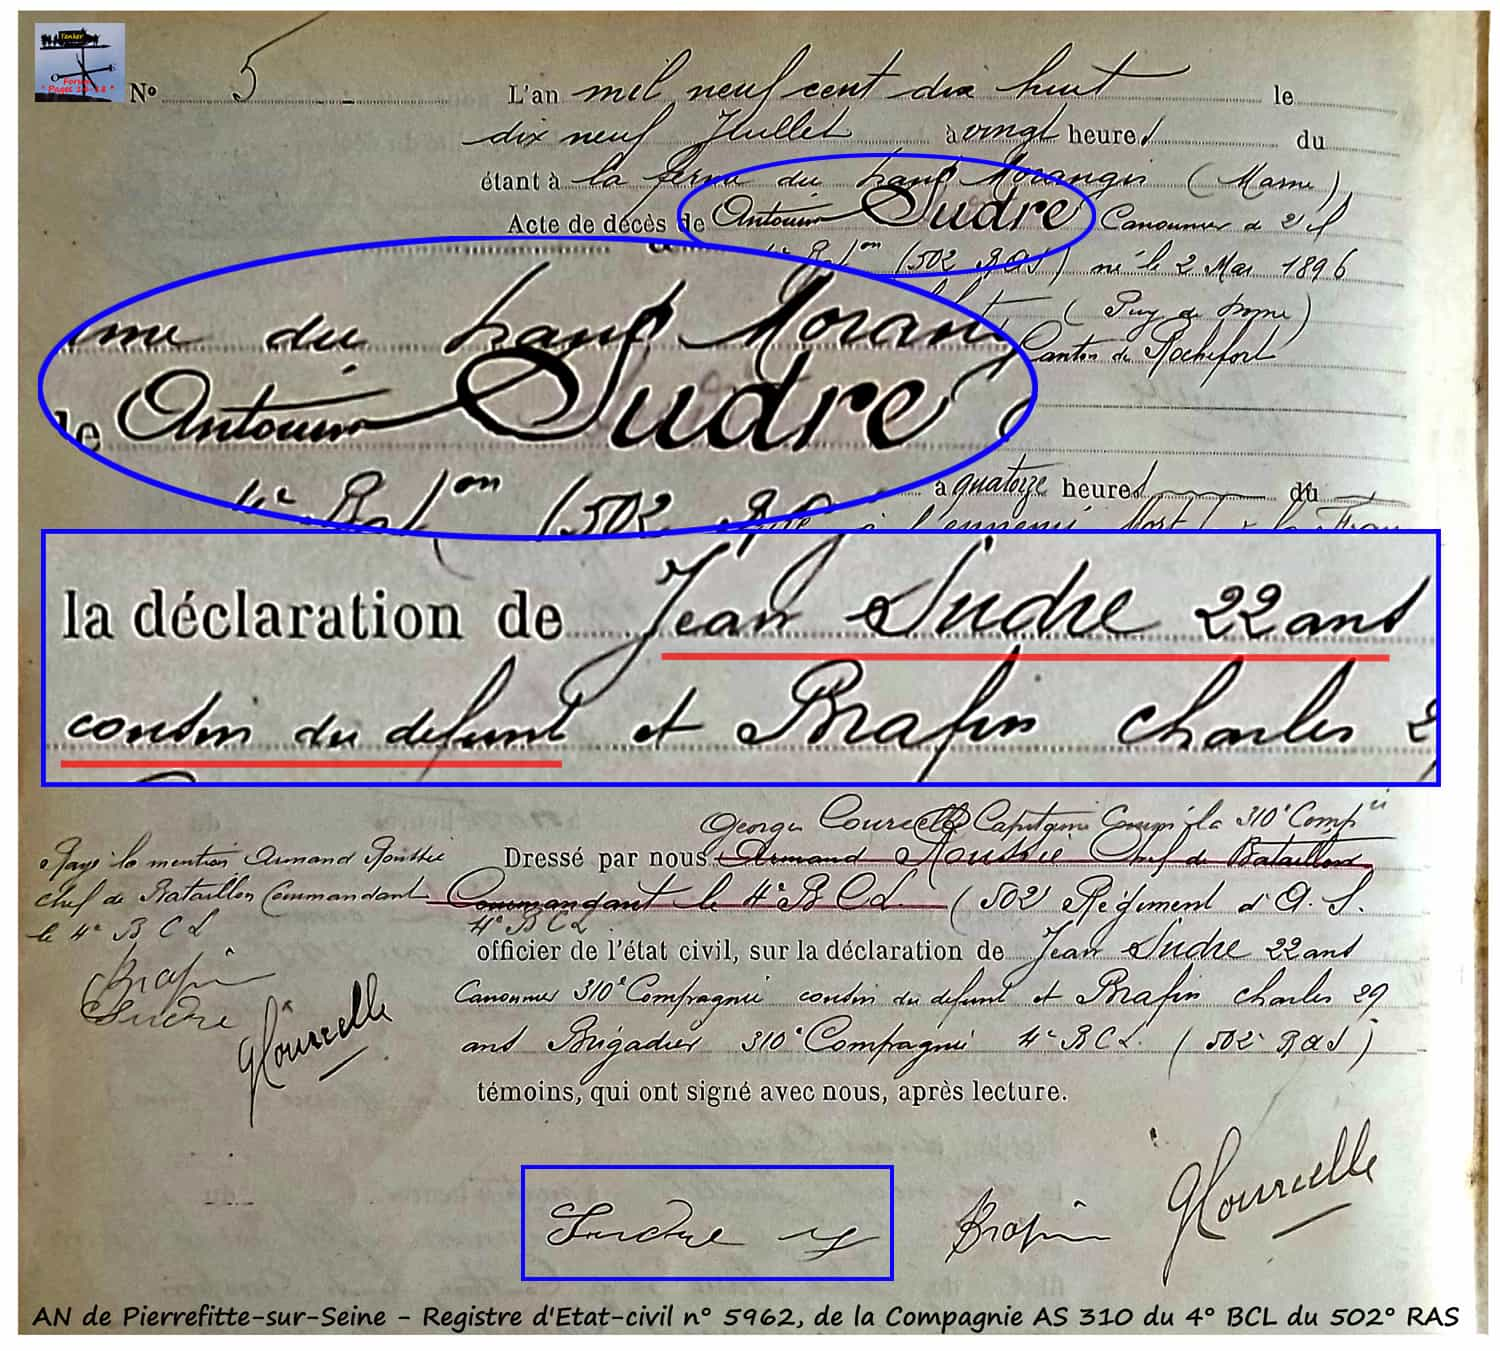 Tanker
Forum
" Pages 14-18 "
N° 5
L'an mil neuf cent dix huit le
dix neuf Juillet à vingt heures du
étant à la ferme du haut Morangis (Marne)
Acte de décès de Antoine Sudre Canonnier de 2e
4e Baton (502 RAS) né le 2 Mai 1896
(Puy de Dome)
Canton de Rochefort
me du haut Moran
le Antoine Sudre
4e Baton (502
à quatorze heures du
à l'ennemi Mort la Fran
la déclaration de Jean Sudre 22 ans
cousin du defunt et Brafin charles 2
Georges Courcelle Capitaine la 310e Compie
Dressé par nous Armand Roussie Chef de Bataillon
Commandant le 4e B C L. (502 Régiment d'A. S.
4e B C L
Rayé la mention Armand Roussie
chef de Bataillon Commandant
le 4e B C L
Brafin
Sudre
GCourcelle
officier de l'état civil, sur la déclaration de Jean Sudre 22 ans
Canonnier 310e Compagnie cousin du defunt et Brafin charles 29
ans Brigadier 310e Compagnie 4e B C L. (502e RAS)
témoins, qui ont signé avec nous, après lecture.
Sudre Brafin GCourcelle
AN de Pierrefitte-sur-Seine - Registre d'Etat-civil n° 5962, de la Compagnie AS 310 du 4° BCL du 502° RAS